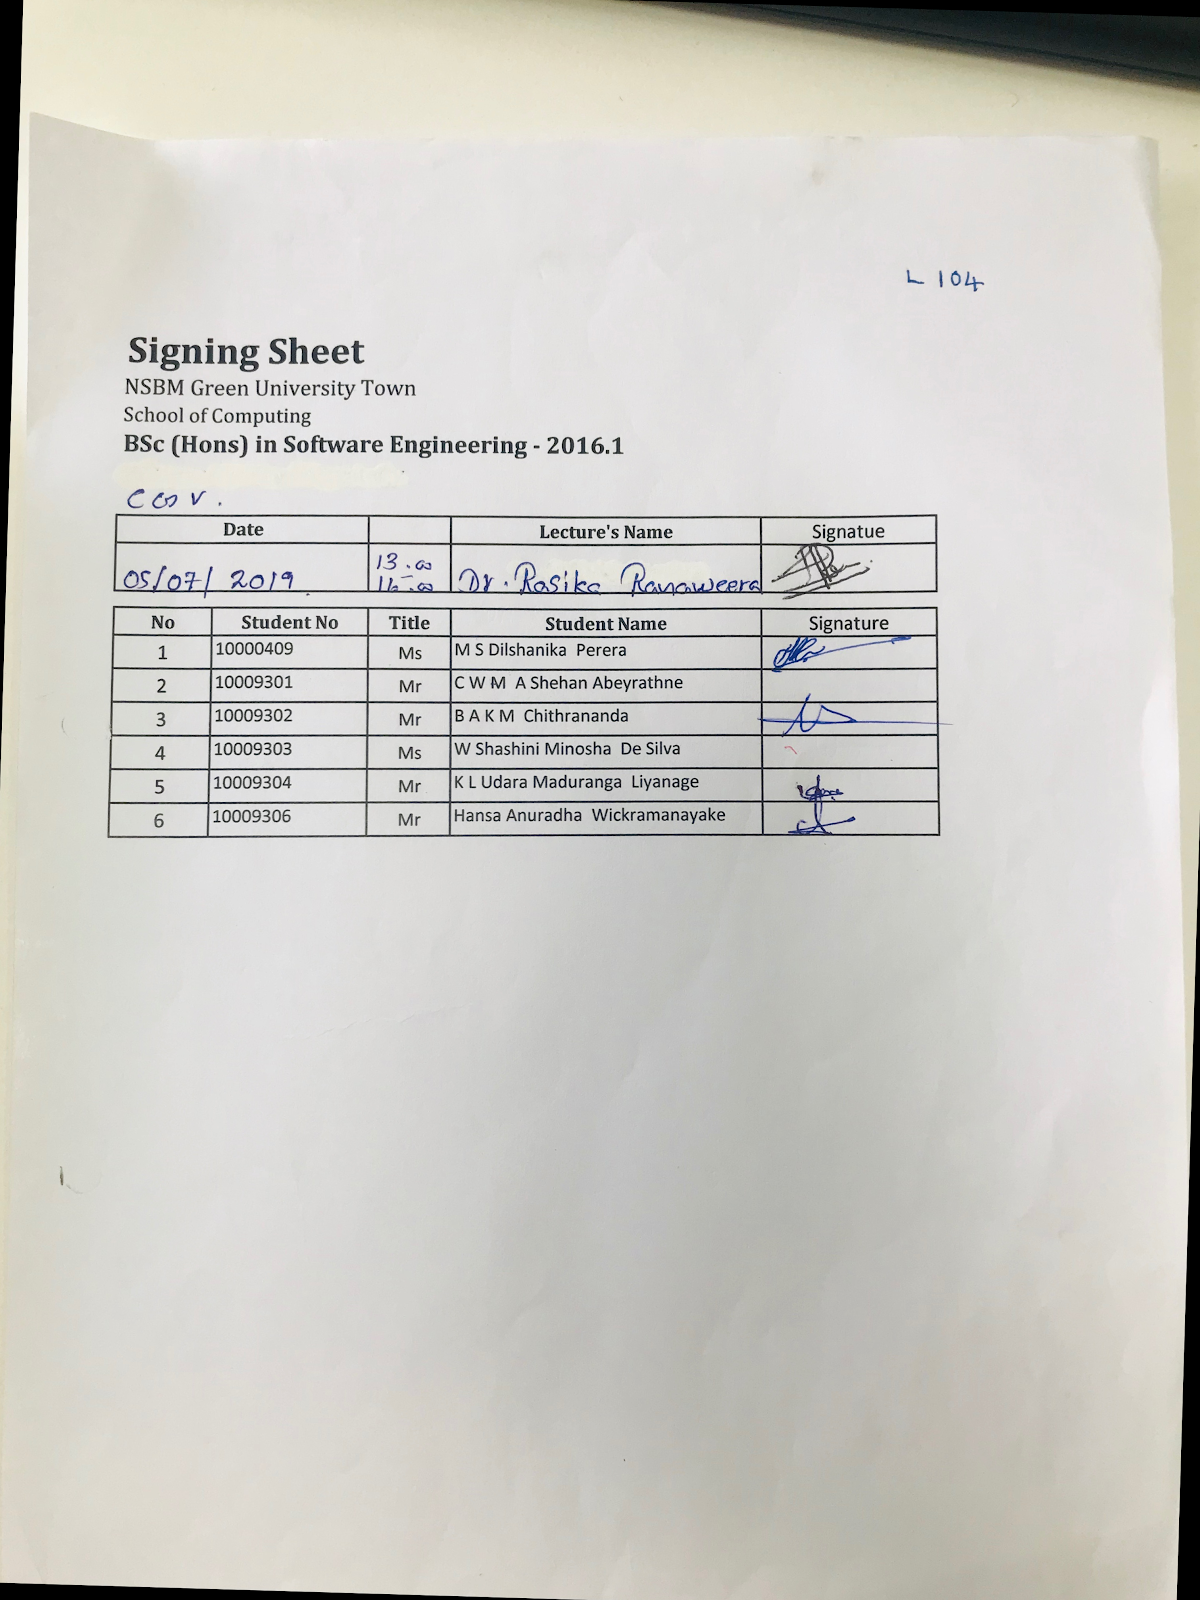 L 104
Signing Sheet
NSBM Green University Town
School of Computing
BSc (Hons) in Software Engineering - 2016.1
Date Lecture's Name Signatue
05/07/ 2019 13.00 Dr. Rasika Ranaweera
No Student No Title Student Name Signature
1 10000409 Ms M S Dilshanika Perera
2 10009301 Mr C W M A Shehan Abeyrathne
3 10009302 Mr B A K M Chithrananda
4 10009303 Ms W Shashini Minosha De Silva
5 10009304 Mr K L Udara Maduranga Liyanage
6 10009306 Mr Hansa Anuradha Wickramanayake